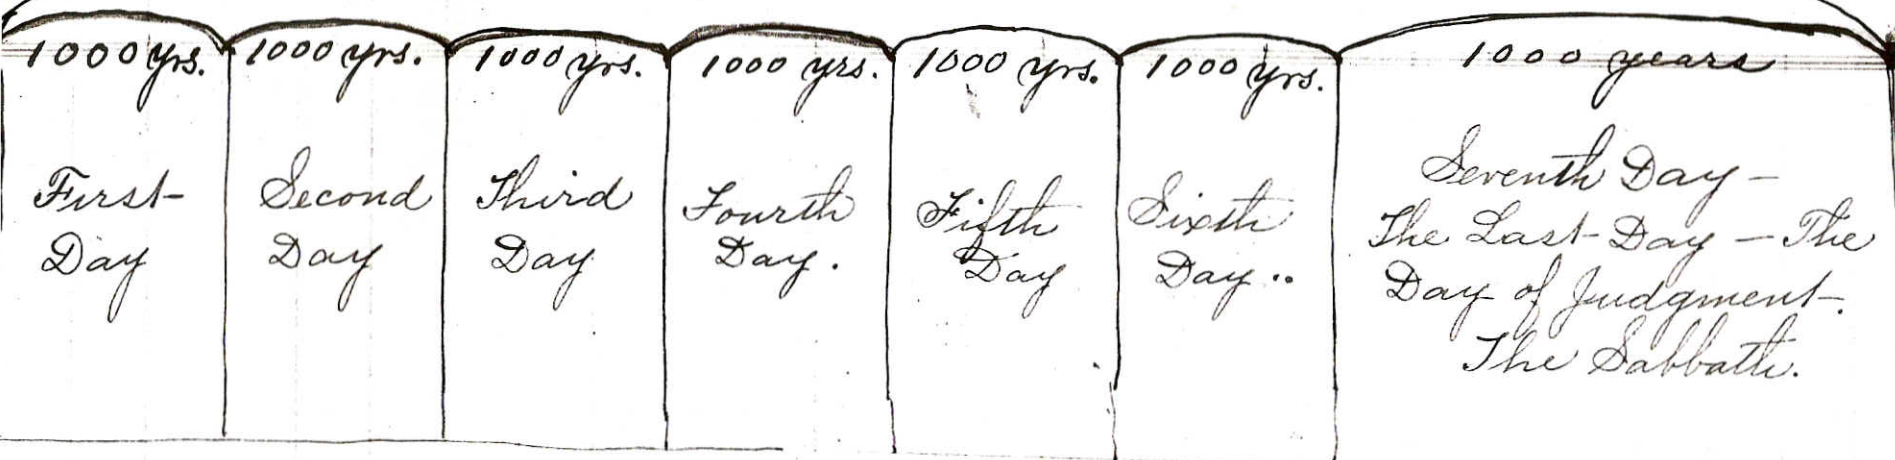 1000 yrs.
First
Day
1000 yrs.
Second
Day
1000 yrs.
Third
Day
1000 yrs.
Fourth
Day.
1000 yrs.
Fifth
Day
1000 yrs.
Sixth
Day..
1000 years
Seventh Day –
The Last Day – The
Day of Judgment.
The Sabbath.